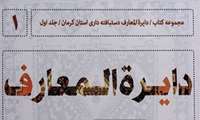 مجموعه کتاب / دایرةالمعارف دستبافته داری استان کرمان / جلد اول
۱
دایرةالمعارف